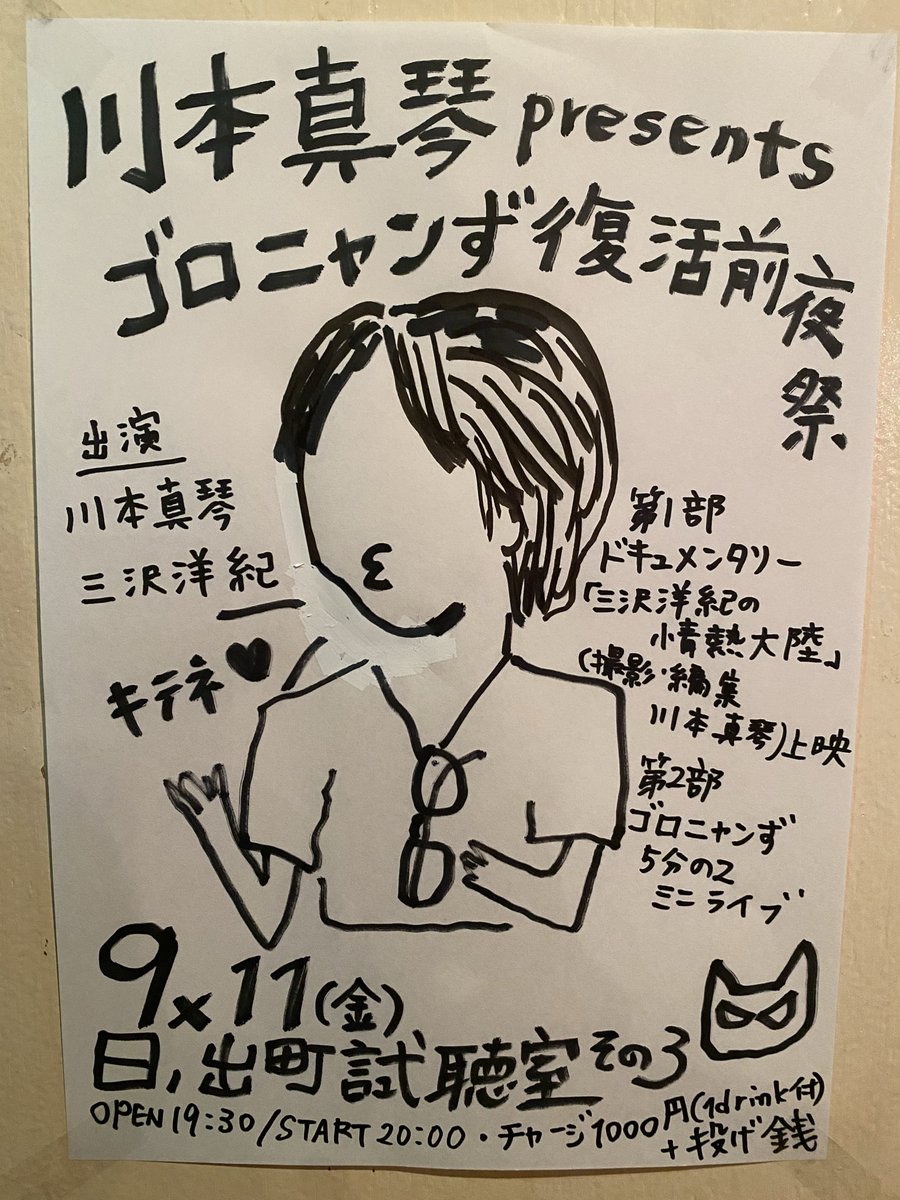 川本真琴presents
ゴロニャンず復活前夜祭
出演
川本真琴
三沢洋紀
キテネ♥
第1部
ドキュメンタリー
「三沢洋紀の
情熱大陸」
(撮影・編集
川本真琴)上映
第2部
ゴロニャンず
5分の2
ミニライブ
9×11(金)
日ノ出町試聴室その3
OPEN19:30/START20:00・チャージ1000円(1drink付)
+投げ銭